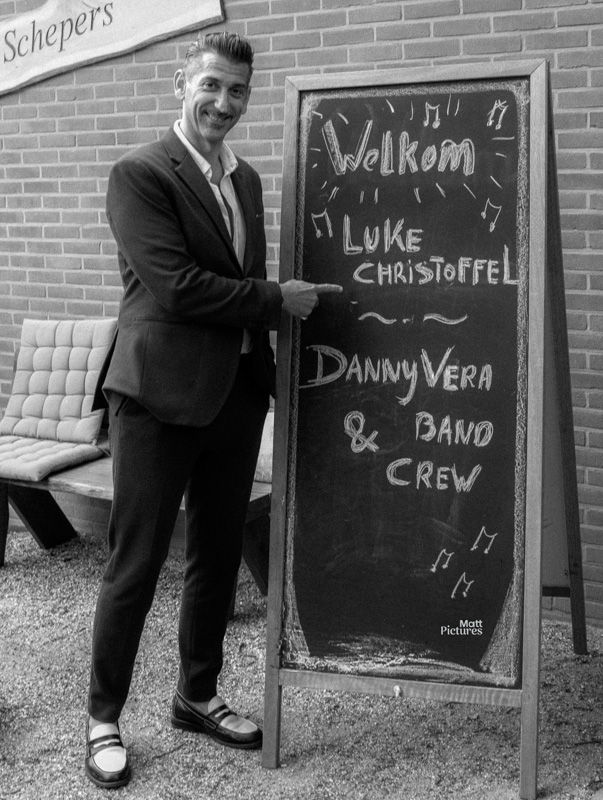 Schepers
Welkom
LUKE
CHRISTOFFEL
DANNY VERA
& BAND
CREW
Matt
Pictures